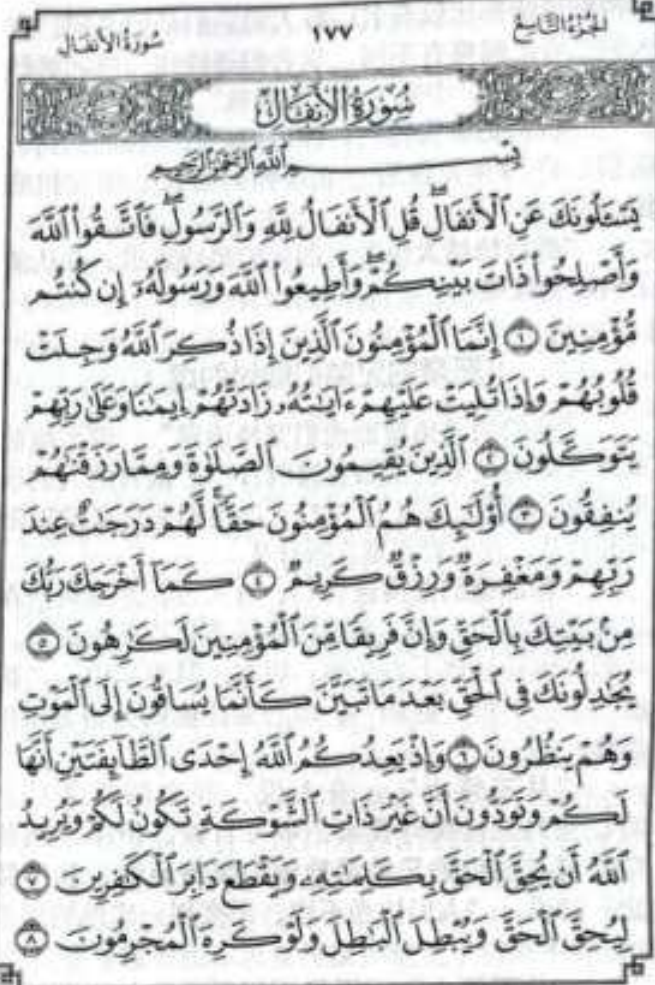 الجزء التاسع
١٧٧
سورة الأنفال
سُورَةُ الأَنفَالِ
بِسْمِ ٱللَّهِ ٱلرَّحْمَٰنِ ٱلرَّحِيمِ
يَسْـَٔلُونَكَ عَنِ ٱلْأَنفَالِۖ قُلِ ٱلْأَنفَالُ لِلَّهِ وَٱلرَّسُولِۖ فَٱتَّقُوا۟ ٱللَّهَ
وَأَصْلِحُوا۟ ذَاتَ بَيْنِكُمْۖ وَأَطِيعُوا۟ ٱللَّهَ وَرَسُولَهُۥٓ إِن كُنتُم
مُّؤْمِنِينَ ١ إِنَّمَا ٱلْمُؤْمِنُونَ ٱلَّذِينَ إِذَا ذُكِرَ ٱللَّهُ وَجِلَتْ
قُلُوبُهُمْ وَإِذَا تُلِيَتْ عَلَيْهِمْ ءَايَٰتُهُۥ زَادَتْهُمْ إِيمَٰنًا وَعَلَىٰ رَبِّهِمْ
يَتَوَكَّلُونَ ٢ ٱلَّذِينَ يُقِيمُونَ ٱلصَّلَوٰةَ وَمِمَّا رَزَقْنَٰهُمْ
يُنفِقُونَ ٣ أُو۟لَٰٓئِكَ هُمُ ٱلْمُؤْمِنُونَ حَقًّاۚ لَّهُمْ دَرَجَٰتٌ عِندَ
رَبِّهِمْ وَمَغْفِرَةٌ وَرِزْقٌ كَرِيمٌ ٤ كَمَآ أَخْرَجَكَ رَبُّكَ
مِنۢ بَيْتِكَ بِٱلْحَقِّ وَإِنَّ فَرِيقًا مِّنَ ٱلْمُؤْمِنِينَ لَكَٰرِهُونَ ٥
يُجَٰدِلُونَكَ فِى ٱلْحَقِّ بَعْدَ مَا تَبَيَّنَ كَأَنَّمَا يُسَاقُونَ إِلَى ٱلْمَوْتِ
وَهُمْ يَنظُرُونَ ٦ وَإِذْ يَعِدُكُمُ ٱللَّهُ إِحْدَى ٱلطَّآئِفَتَيْنِ أَنَّهَا
لَكُمْ وَتَوَدُّونَ أَنَّ غَيْرَ ذَاتِ ٱلشَّوْكَةِ تَكُونُ لَكُمْ وَيُرِيدُ
ٱللَّهُ أَن يُحِقَّ ٱلْحَقَّ بِكَلِمَٰتِهِۦ وَيَقْطَعَ دَابِرَ ٱلْكَٰفِرِينَ ٧
لِيُحِقَّ ٱلْحَقَّ وَيُبْطِلَ ٱلْبَٰطِلَ وَلَوْ كَرِهَ ٱلْمُجْرِمُونَ ٨